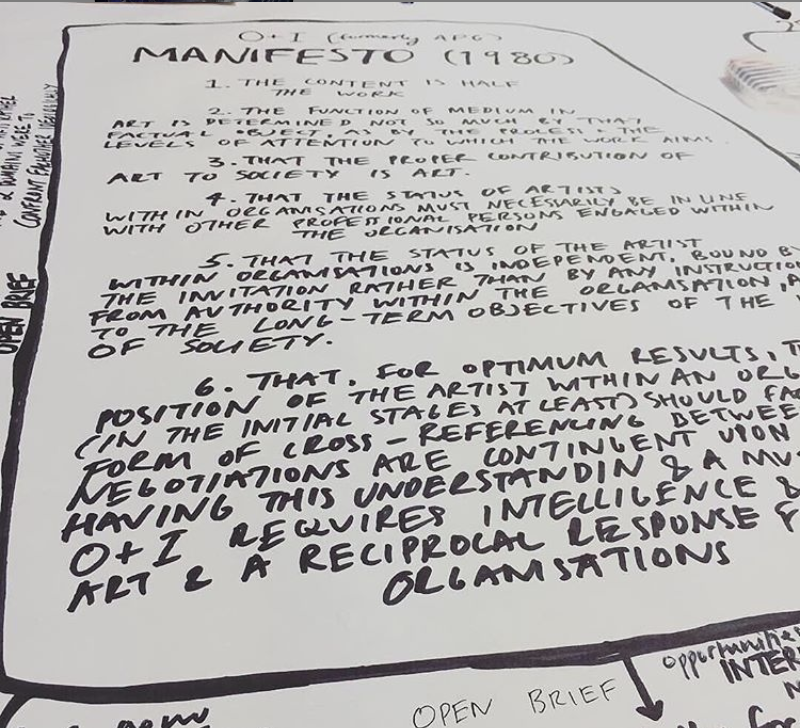 O+I (formerly APG)
MANIFESTO (1980)
1. THE CONTENT IS HALF
THE WORK
2. THE FUNCTION OF MEDIUM IN
ART IS DETERMINED NOT SO MUCH BY THAT
FACTUAL OBJECT, AS BY THE PROCESS & THE
LEVELS OF ATTENTION TO WHICH THE WORK AIMS.
3. THAT THE PROPER CONTRIBUTION OF
ART TO SOCIETY IS ART.
4. THAT THE STATUS OF ARTISTS
WITHIN ORGANISATIONS MUST NECESSARILY BE IN LINE
WITH OTHER PROFESSIONAL PERSONS ENGAGED WITHIN
THE ORGANISATION
5. THAT THE STATUS OF THE ARTIST
WITHIN ORGANISATIONS IS INDEPENDENT, BOUND BY
THE INVITATION RATHER THAN BY ANY INSTRUCTIO
FROM AUTHORITY WITHIN THE ORGANISATION,
TO THE LONG-TERM OBJECTIVES OF THE
OF SOCIETY.
6. THAT, FOR OPTIMUM RESULTS, T
POSITION OF THE ARTIST WITHIN AN ORG
(IN THE INITIAL STAGES AT LEAST) SHOULD FA
FORM OF CROSS-REFERENCING BETWEE
NEGOTIATIONS ARE CONTINGENT UPON
HAVING THIS UNDERSTANDIN & A MU
O+I REQUIRES INTELLIGENCE &
ART & A RECIPROCAL RESPONSE F
ORGANISATIONS
CONFRONT EACHOTHER
OPEN BRIEF
OPEN BRIEF
opportunities
INTER